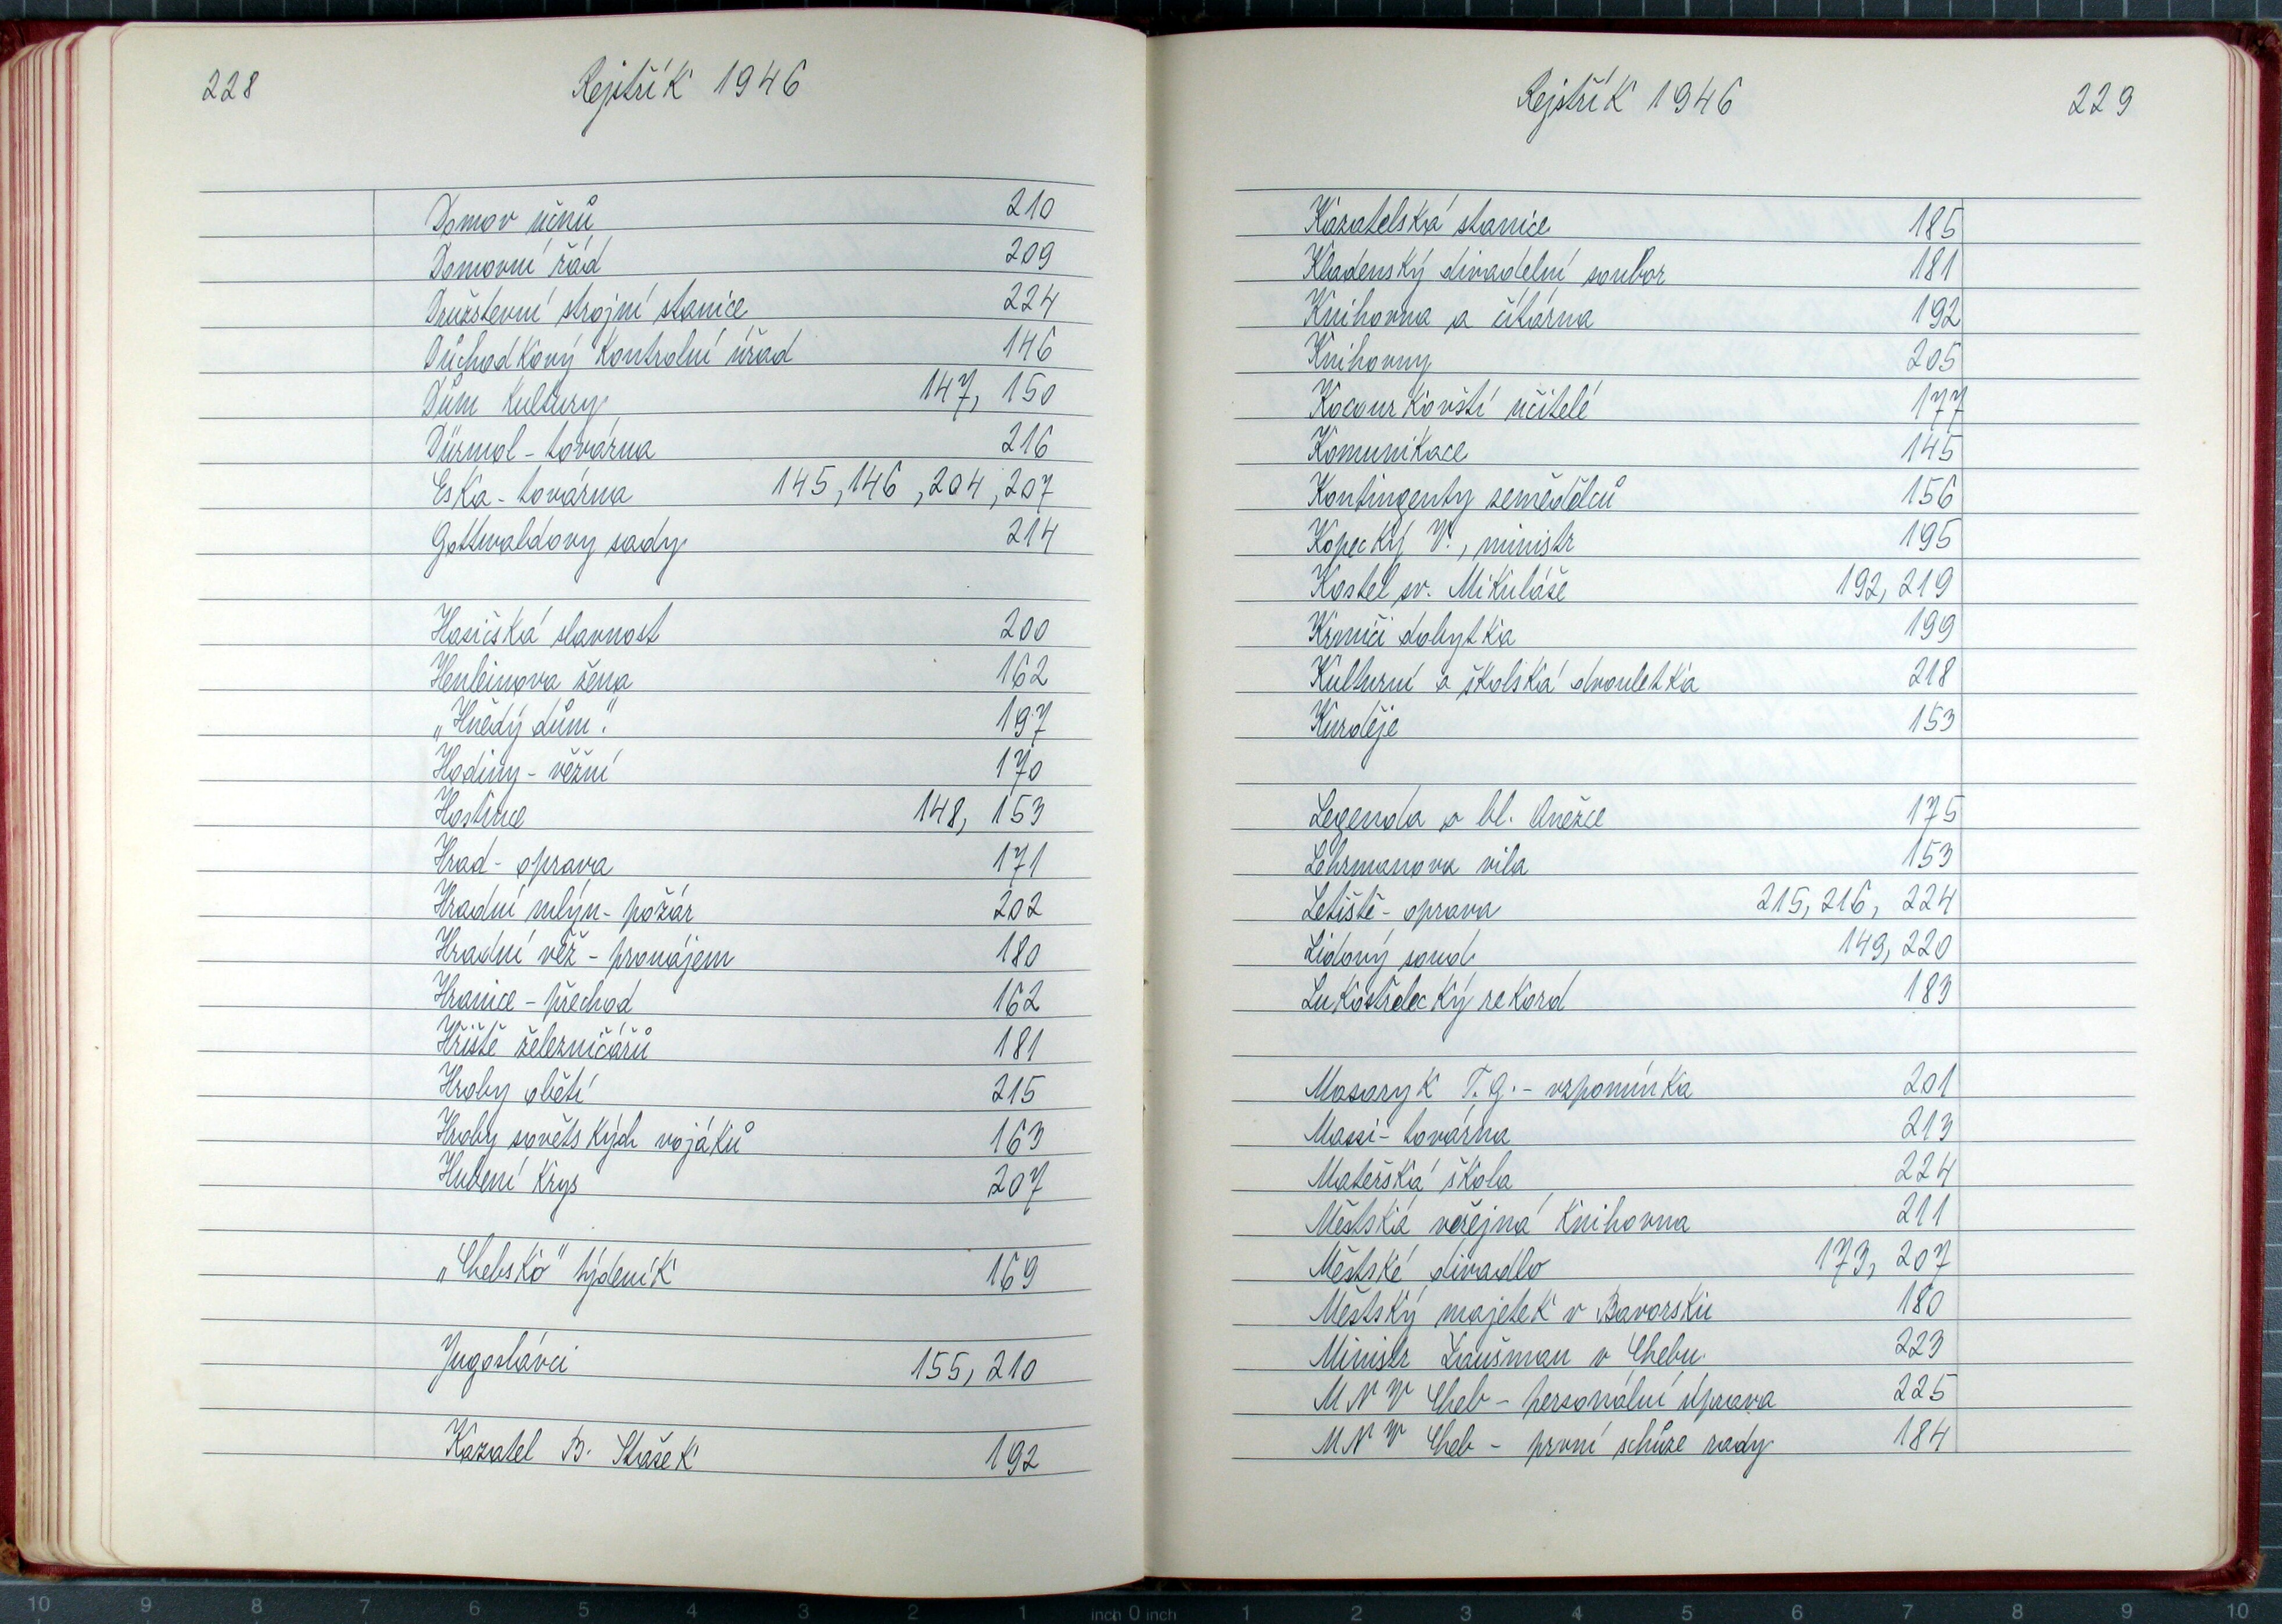 228
Rejstřík 1946
Domov učňů 210
Domovní řád 209
Družstevní strojní stanice 224
Důchodkový kontrolní úřad 146
Dům kultury 147, 150
Dürmol - továrna 216
Eska - továrna 145, 146, 204, 207
Gottwaldovy sady 214
Hasičská slavnost 200
Henleinova žena 162
„Hnědý dům“ 197
Hodiny - věžní 170
Hostince 148, 153
Hrad - oprava 171
Hradní mlýn - požár 202
Hradní věž - pronájem 180
Hranice - přechod 162
Hřiště železničářů 181
Hroby obětí 215
Hroby sovětských vojáků 163
Hubení krys 207
„Chebsko“ týdeník 169
Jugoslávci 155, 210
Kazatel B. Stašek 192
Rejstřík 1946
229
Kazatelská stanice 185
Kladenský divadelní soubor 181
Knihovna a čítárna 192
Knihovny 205
Kocourkovští učitelé 177
Komunikace 145
Kontingenty zemědělců 156
Kopecký V., ministr 195
Kostel sv. Mikuláše 192, 219
Krmiči dobytka 199
Kulturní a školská dvouletka 218
Kurděje 153
Legenda o bl. Anežce 175
Lehrmanova vila 153
Letiště - oprava 215, 216, 224
Lidový soud 149, 220
Lukostřelecký rekord 183
Masaryk T. G. - vzpomínka 201
Massi - továrna 213
Mateřská škola 224
Městská veřejná knihovna 211
Městské divadlo 173, 207
Městský majetek v Bavorsku 180
Ministr Laušman v Chebu 223
MNV Cheb - personální úprava 225
MNV Cheb - první schůze rady 184
10 9 8 7 6 5 4 3 2 1 inch 0 inch 1 2 3 4 5 6 7 8 9 10